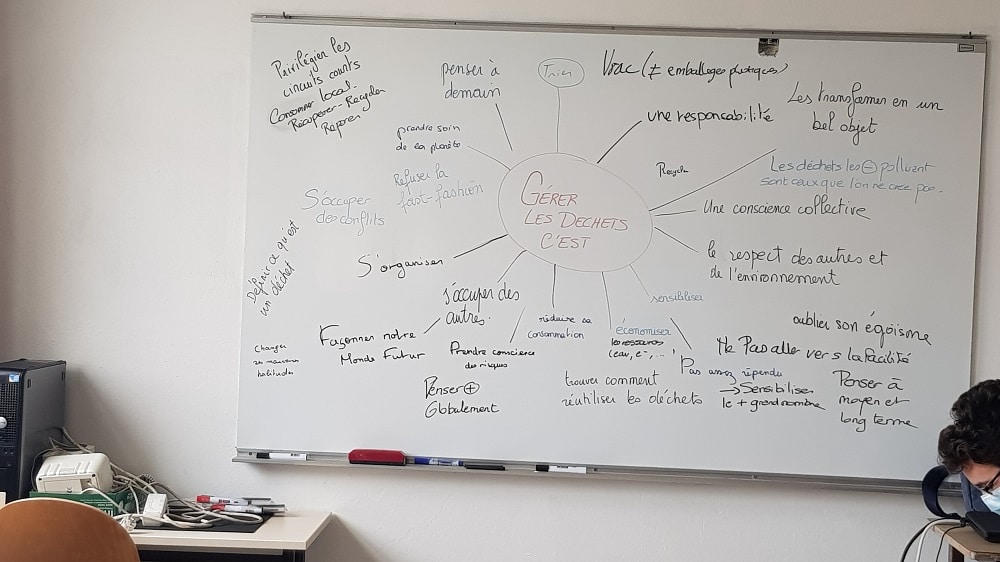 Privilégier les
circuits courts
Consommer local.
Récupérer - Recycler
Réparer
penser à
demain
Trier
Vrac (≠ emballages plastiques)
une responsabilité
Les transformer en un
bel objet
prendre soin
de la planète
Refuser la
fast-fashion
S'occuper
des conflits
Recycler
Les déchets les ⊖ polluant
sont ceux que l'on ne crée pas.
GÉRER
LES DECHETS
C'EST
Une conscience collective
le respect des autres et
de l'environnement
S'organiser
Définir ce qu'est
un déchet
s'occuper des
autres.
sensibiliser
réduire sa
consommation
économiser
les ressources
(eau, e-, ...)
Façonner notre
Monde Futur
Changer
ses mauvaises
habitudes
Prendre conscience
des risques
Penser ⊕
Globalement
trouver comment
réutiliser les déchets
Pas assez répendu
→ Sensibiliser
le + grand nombre
oublier son égoïsme
Ne Pas aller vers la facilité
Penser à
moyen et
long terme